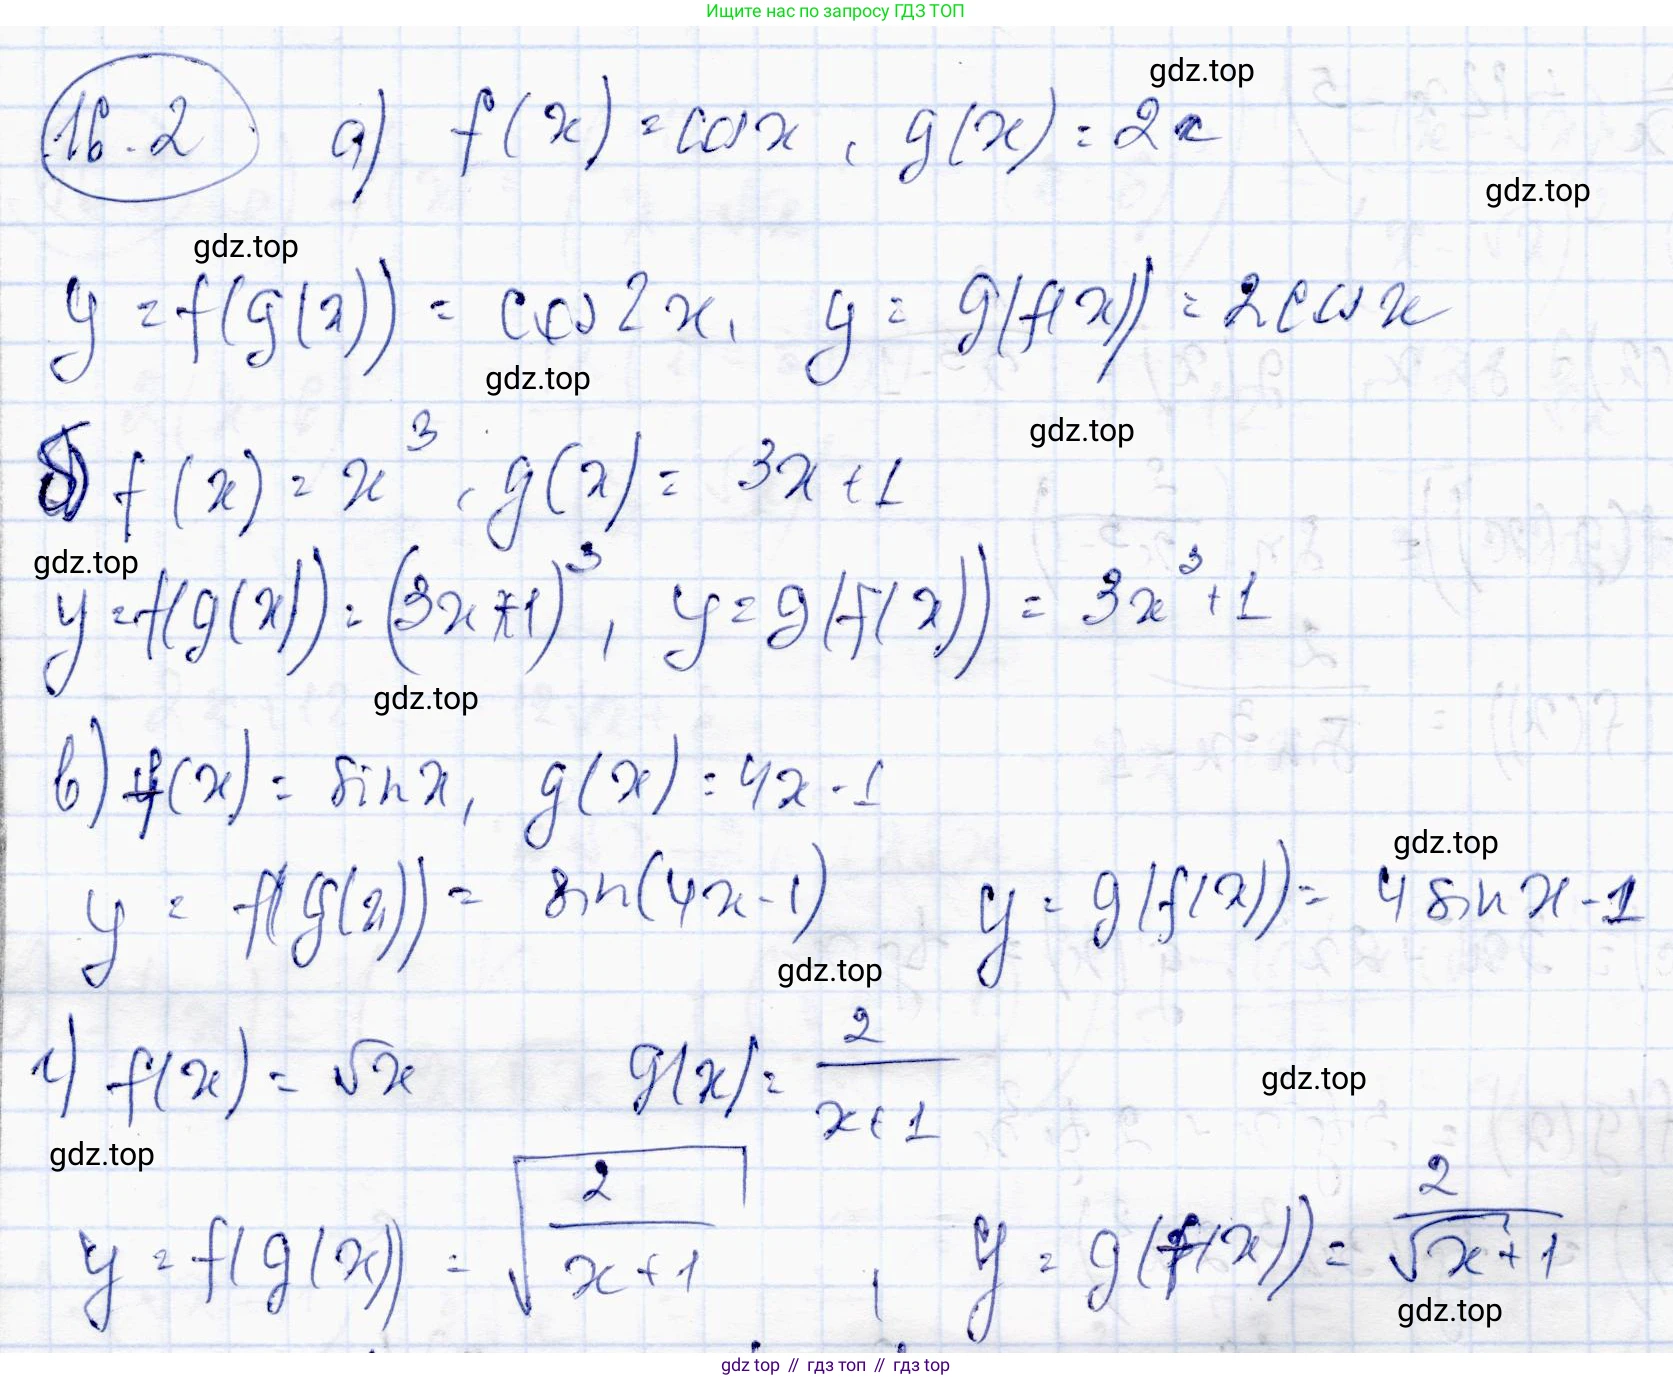 Ищите нас по запросу ГДЗ ТОП
gdz.top
16.2 а) f(x) = cos x, g(x) = 2x
gdz.top
gdz.top
y = f(g(x)) = cos 2x, y = g(f(x)) = 2cos x
gdz.top
gdz.top
б) f(x) = x³, g(x) = 3x + 1
gdz.top
y = f(g(x)) = (3x+1)³, y = g(f(x)) = 3x³ + 1
gdz.top
в) f(x) = sin x, g(x) = 4x - 1
gdz.top
y = f(g(x)) = sin(4x-1) y = g(f(x)) = 4 sin x - 1
gdz.top
г) f(x) = √x g(x) = 2/(x+1)
gdz.top
gdz.top
y = f(g(x)) = √(2/(x+1)), y = g(f(x)) = 2/(√x+1)
gdz.top
gdz top // гдз топ // гдз top